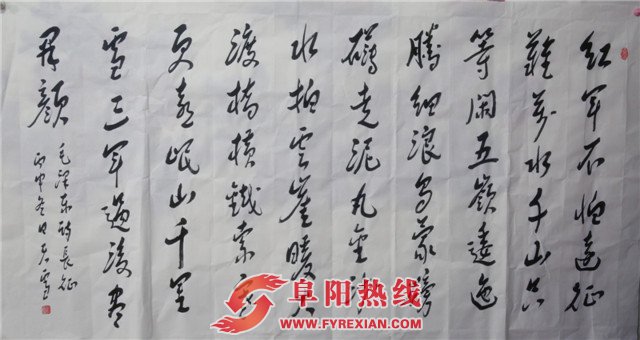 红军不怕遠征
難萬水千山只
等闲五嶺逶迤
腾细浪乌蒙磅
礴走泥丸金沙
水拍云崖暖大
渡桥横鐵索寒
更喜岷山千里
雪三军过後尽
开颜
毛泽东诗長征
丙申冬日
阜阳热线
WWW.FYREXIAN.COM